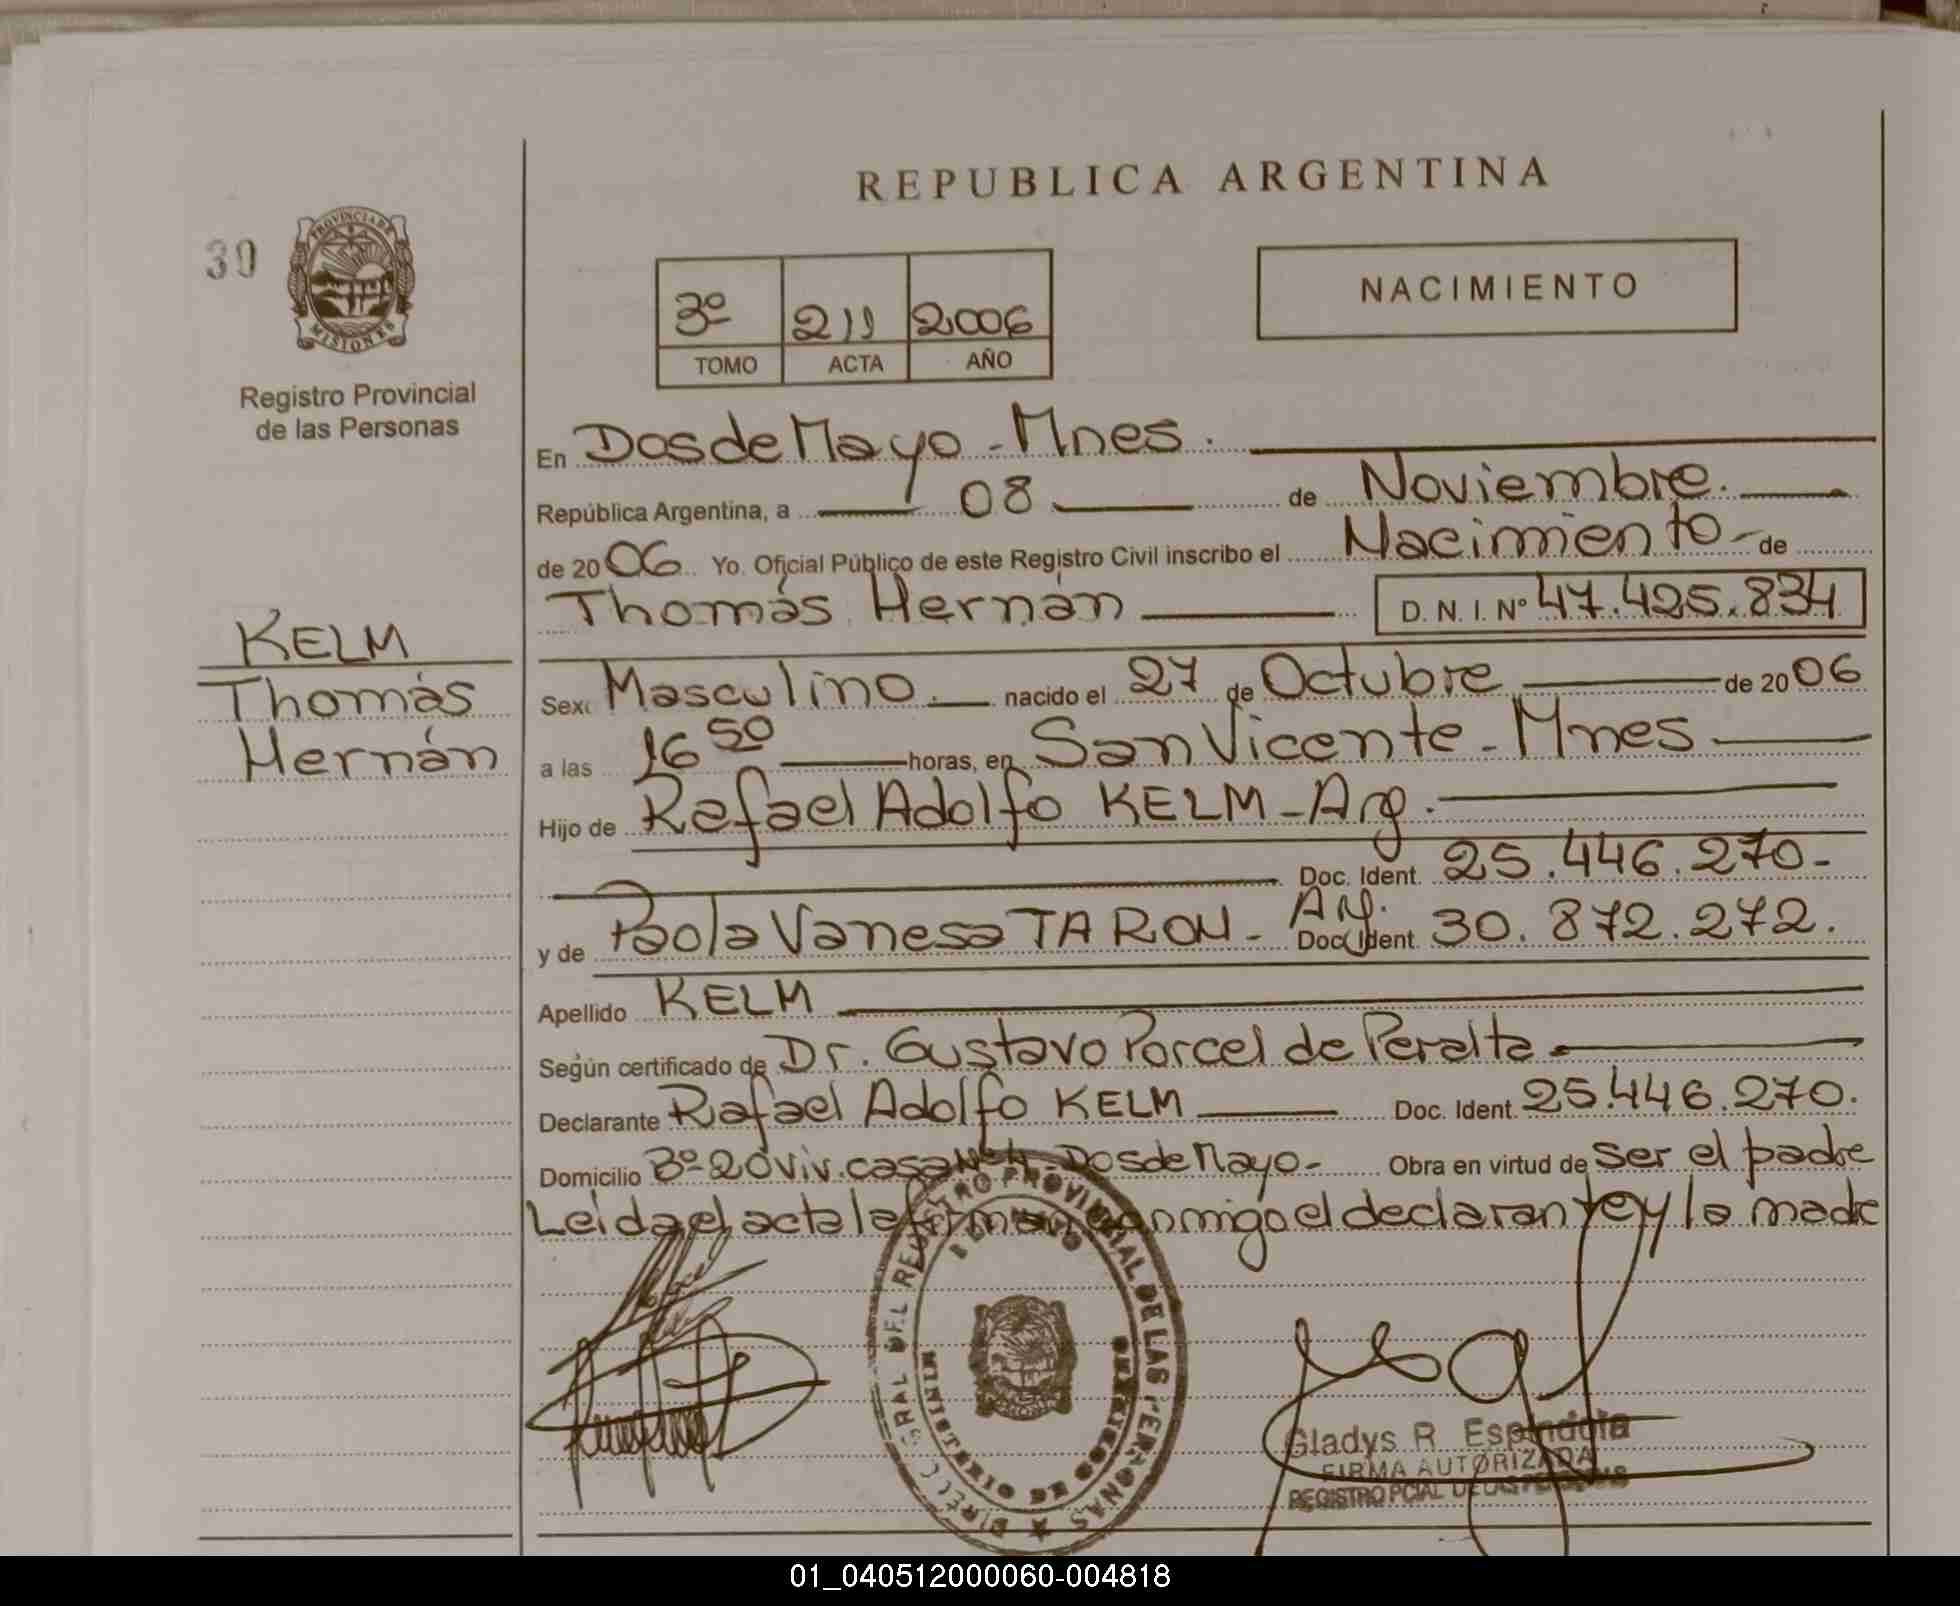 REPUBLICA ARGENTINA
30
PROVINCIA DE
MISIONES
Registro Provincial
de las Personas
3º 211 2006
TOMO ACTA AÑO
NACIMIENTO
En Dos de Mayo - Mnes.
República Argentina, a 08 de Noviembre.
de 2006 Yo. Oficial Público de este Registro Civil inscribo el Nacimiento - de
Thomás Hernán D. N. I. Nº 47.425.834
KELM
Thomás
Hernán
Sexo Masculino. nacido el 27 de Octubre de 2006
a las 16 50 horas, en San Vicente - Mnes
Hijo de Rafael Adolfo KELM - Arg.
Doc. Ident. 25.446.270-
y de Paola Vanesa TARON - Arg. Doc. Ident. 30.872.272.
Apellido KELM
Según certificado de Dr. Gustavo Porcel de Peralta
Declarante Rafael Adolfo KELM Doc. Ident. 25.446.270.
Domicilio Bº 20 viv. casa Nº 4 - Dos de Mayo - Obra en virtud de ser el padre
Leída el acta la firman conmigo el declarante y la madre
REGISTRO PROVINCIAL DE LAS PERSONAS
Gladys R Espindola
FIRMA AUTORIZADA
REGISTRO PCIAL DE LAS PERSONAS
01_040512000060-004818